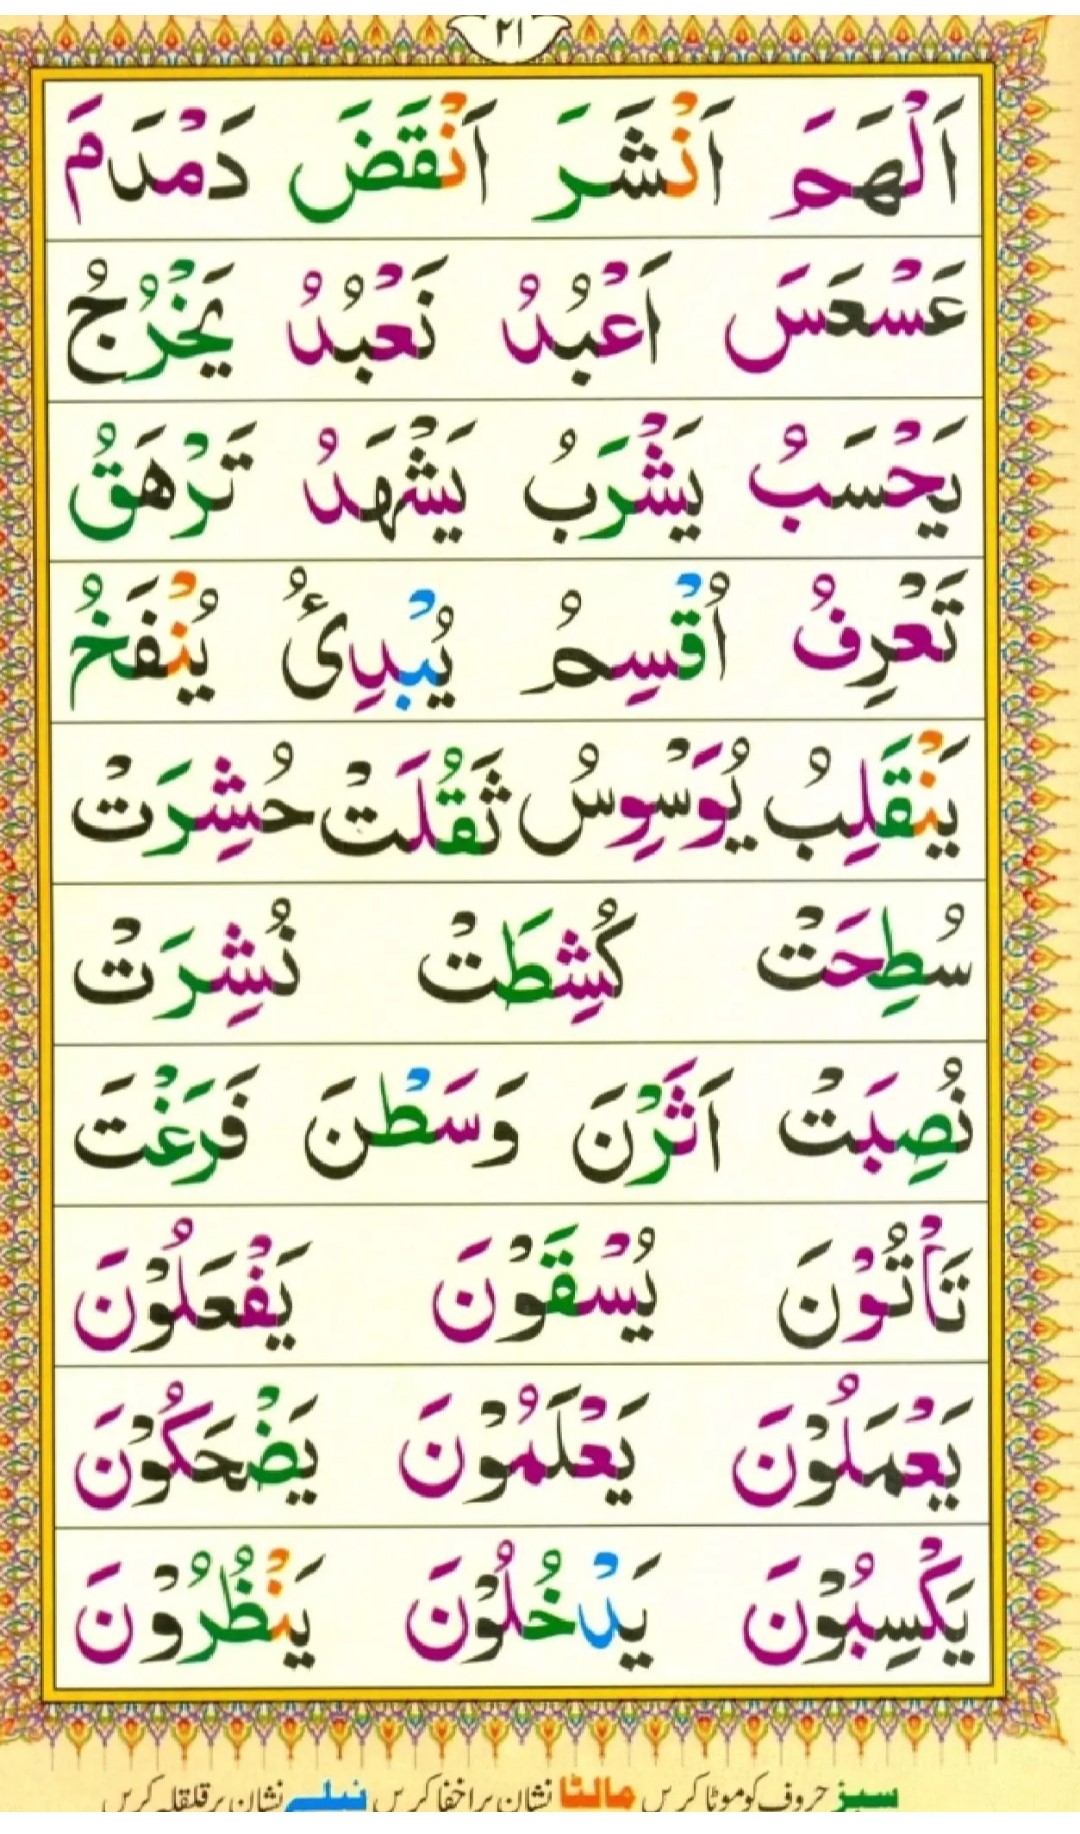 ٢١
اَلْهَمَ اَنْشَرَ اَنْقَضَ دَمْدَمَ
عَسْعَسَ اَعْبُدُ نَعْبُدُ يَخْرُجُ
يَحْسَبُ يَشْرَبُ يَشْهَدُ تَرْهَقُ
تَعْرِفُ اُقْسِمُ يُبْدِئُ يُنْفَخُ
يَنْقَلِبُ يُوَسْوِسُ ثَقُلَتْ حُشِرَتْ
سُطِحَتْ كُشِطَتْ نُشِرَتْ
نُصِبَتْ اَثَرْنَ وَسَطْنَ فَرَغْتَ
تَأْتُوْنَ يُسْقَوْنَ يَفْعَلُوْنَ
يَعْمَلُوْنَ يَعْلَمُوْنَ يَضْحَكُوْنَ
يَكْسِبُوْنَ يَدْخُلُوْنَ يَنْظُرُوْنَ
سبز حروف کو موٹا کریں مالٹا نشان پر اخفا کریں نیلے نشان پر قلقلہ کریں